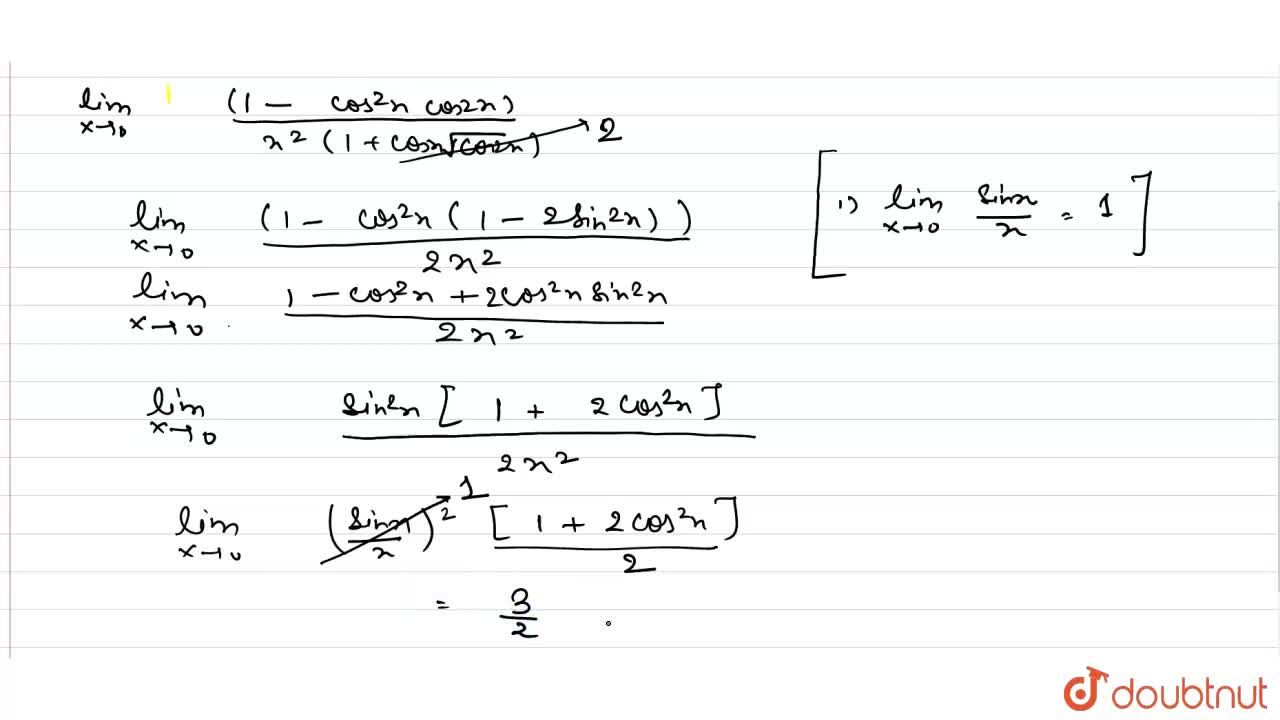 lim x→0 (1 - cos²x cos2x) / x² (1 + cosx√cos2x) → 2
[ 1) lim x→0 sinx / x = 1 ]
lim x→0 (1 - cos²x (1 - 2sin²x)) / 2x²
lim x→0 1 - cos²x + 2cos²x sin²x / 2x²
lim x→0 sin²x [ 1 + 2cos²x ] / 2x²
lim x→0 (sinx / x)² → 1 [ 1 + 2cos²x ] / 2
= 3 / 2
doubtnut